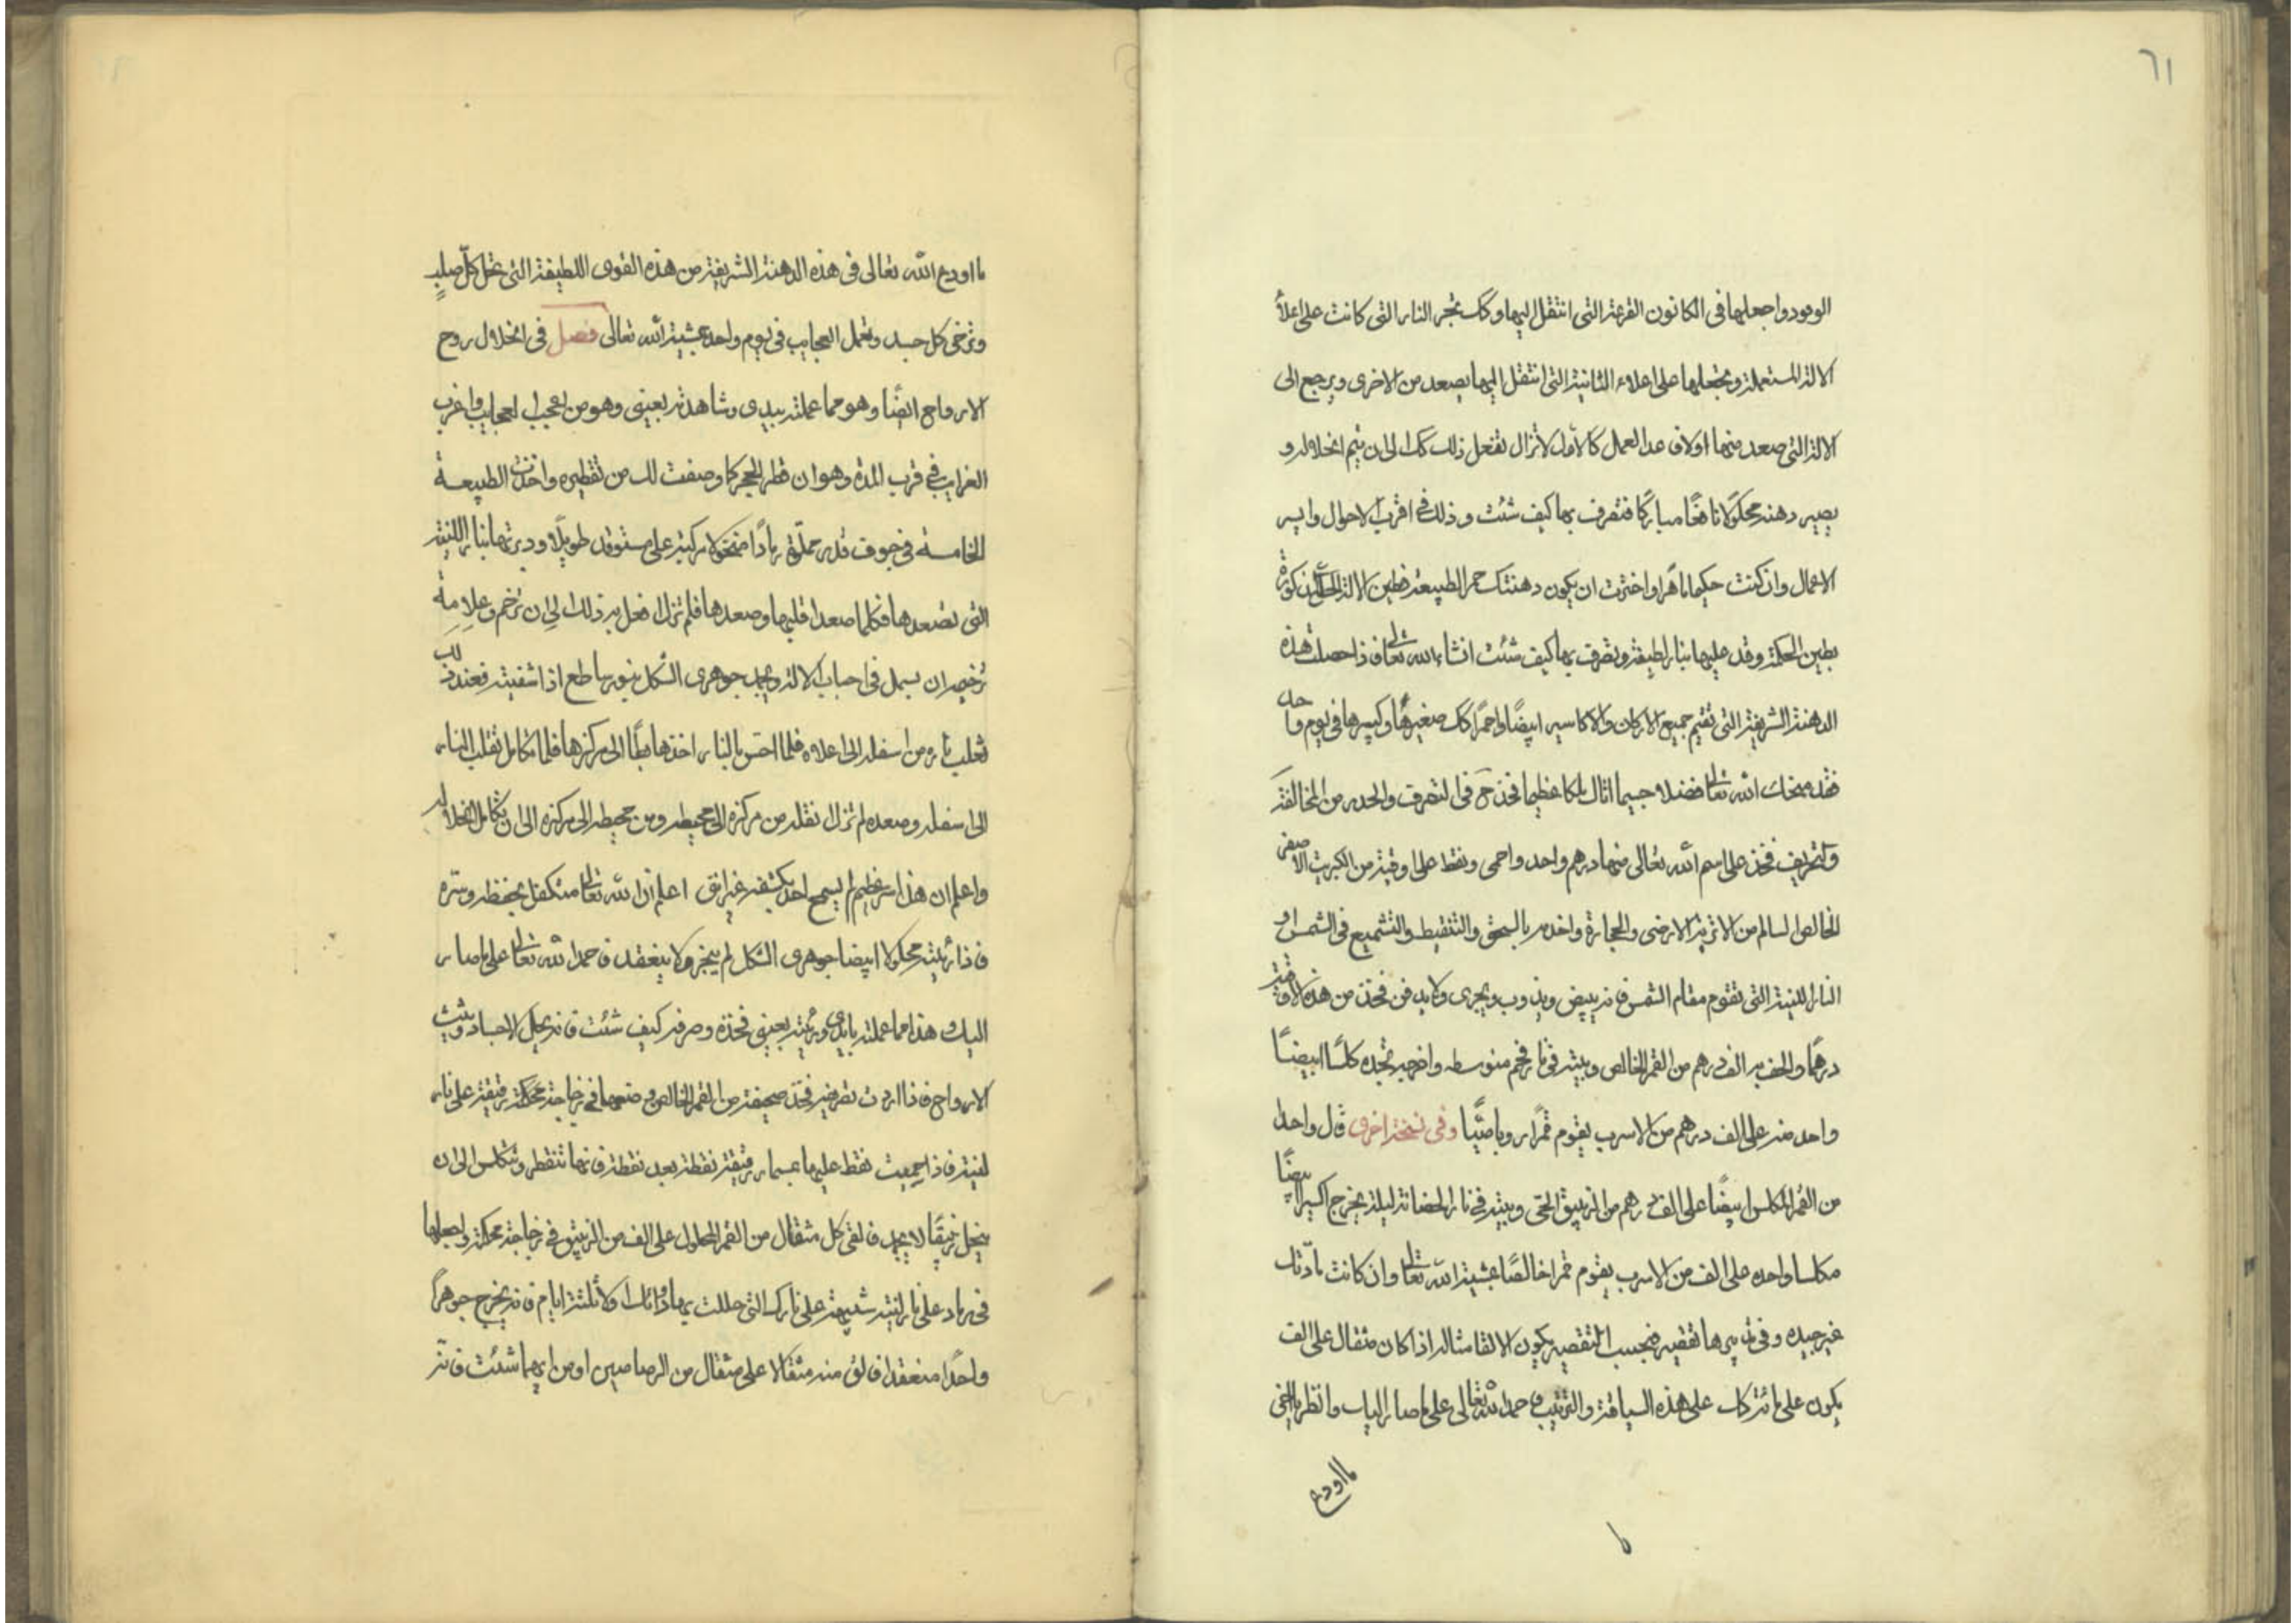 ٦١
الوقود واجعلها فى الكانون القرعة التى انتقل اليها وكك تجر النار التى كانت على اعلا
الالة المستعملة وتجعلها على اعلاء الثانية التى انتقل اليها يصعد من الاخرى ويرجع الى
الالة التى صعد منها اولا فى عدا العمل كالأول لا تزال تفعل ذلك كك الى ان يتم انحلاله و
يصير دهنه محكولا نافعًا مباركًا فتصرف بها كيف شئت وذلك فى اقرب الاحوال وايسر
الاعمال وان كنت حكيما ماهرا واخترت ان يكون دهنتك حمر الطبيعة فطين الالة
بطين الحكمة وقد عليها بنار لطيفة وتصرف بها كيف شئت انشاء الله تعالى فاذا حصلت هذه
الدهنة الشريفة التى تقيم جميع الاركان والاكاسير ابيضًا واحمرًا كك صغيرها وكبيرها فى يوم واحد
فقد منحك الله تعالى فضلا جسيما اثال ملكا عظيما فخذ فى التصرف والحذر من المخالفة
والتحريف فخذ على اسم الله تعالى منها درهم واحد واحمى ونقط على اوقية من الكبريت الاصفر
الخالص السالم من الاتربة الارضى والحجارة واخدمه بالسحق والتنقيط والتشميع فى الشمس او
النار اللينة التى تقوم مقام الشمس فانه يبيض ويذوب ويجرى ولا يدخن فخذ من هذه الاوقية
درهمًا والحف به الف درهم من القمر الخالص وبيته فى نار فحم متوسطه واخرجه تجده كلسًا ابيضًا
واحد منه على الف درهم من الاسرب يقوم قمرًا روباصيًا وفى نسخة اخرى قال واحدا
من القمر المكلس ابيضًا على الف درهم من الزيبق الحى وبيته فى نار الحضانة ليلة يخرج اكسيرا ابيضًا
مكلسا واحده على الف من الاسرب يقوم قمرا خالصًا بمشية الله تعالى وان كانت مادّتك
غير جيده وفى تدبيرها تقصير فبحسب التقصير يكون الالقا مثاله اذا كان مثقال على الف
يكون على مائة كك على هذه السياقة والترتيب فاحمد الله تعالى على ما صار اليك وانظر يا اخى
ما اودع
ما اودع الله تعالى فى هذه الدهنة الشريفة من هذه القوى اللطيفة التى تحل كلّ صلبٍ
وترخى كل جسد وتعمل العجايب فى يوم واحد بمشية الله تعالى فصل فى انحلال روح
الارواح ايضًا وهو مما عملته بيدى وشاهدته بعينى وهو من اعجب العجايب واغرب
الغرايب فى قرب المدة وهو ان قطر الحجر كما وصفت لك من تقطيره واخذت الطبيعة
الخامسة فى جوف قدر مملوّة رمادًا منخولا مركبة على مستوقد طويلا ودبرتها بنار اللينة
التى تصعدها فكلما صعد اقلبها وصعدها فلم تزل افعل به ذلك الى ان ترخم وعلامة
ترخيمه ان يسيل فى اجناب الالة وتجمد جوهرى الشكل بنور ساطع اذا شفيته فعند ذلك
تقلب ناره من اسفله الى اعلاه فلما احسّ بالنار اخذ هابطًا الى مركزها فلما تكامل تقلب النار
الى اسفله وصعده لم تزل تقلبه من مركزه الى محيطه ومن محيطه الى مركزه الى ان تكامل انحلاله
واعلم ان هذا سر عظيم لم يسمح احد بكشفه غير اننى اعلم ان الله تعالى متكفل بحفظه وستره
فاذا رئيته محلولا ابيضا جوهرى الشكل لم يتجز ولا ينعقد فاحمد الله تعالى على ما صار
اليك وهذا مما عملته بايدى ورئيته بعينى فخذه وصرفه كيف شئت فانه يحل الاجساد ويثبت
الارواح فاذا اردت تصرفيه فخذ صحيفة من القمر الخالص وضعها فى زجاجة محكمة رقيقة على نار
لينة فاذا حميت نقط عليها بمسمار رقيقة نقطة بعد نقطة فانها تتقطر وتتكلس الى ان
ينحل زيبقًا لا يجمد فالقى كل مثقال من القمر المحلول على الف من الزيبق فى زجاجة محكمة واجعلها
فى رماد على نار لينة شبيهة على نارك التى حللت بها دوائك اولا ثلثة ايام فانه يخرج جوهرًا
واحدًا منعقدا فالق منه مثقالا على مثقال من الرصاصين او من ايهما شئت فانه